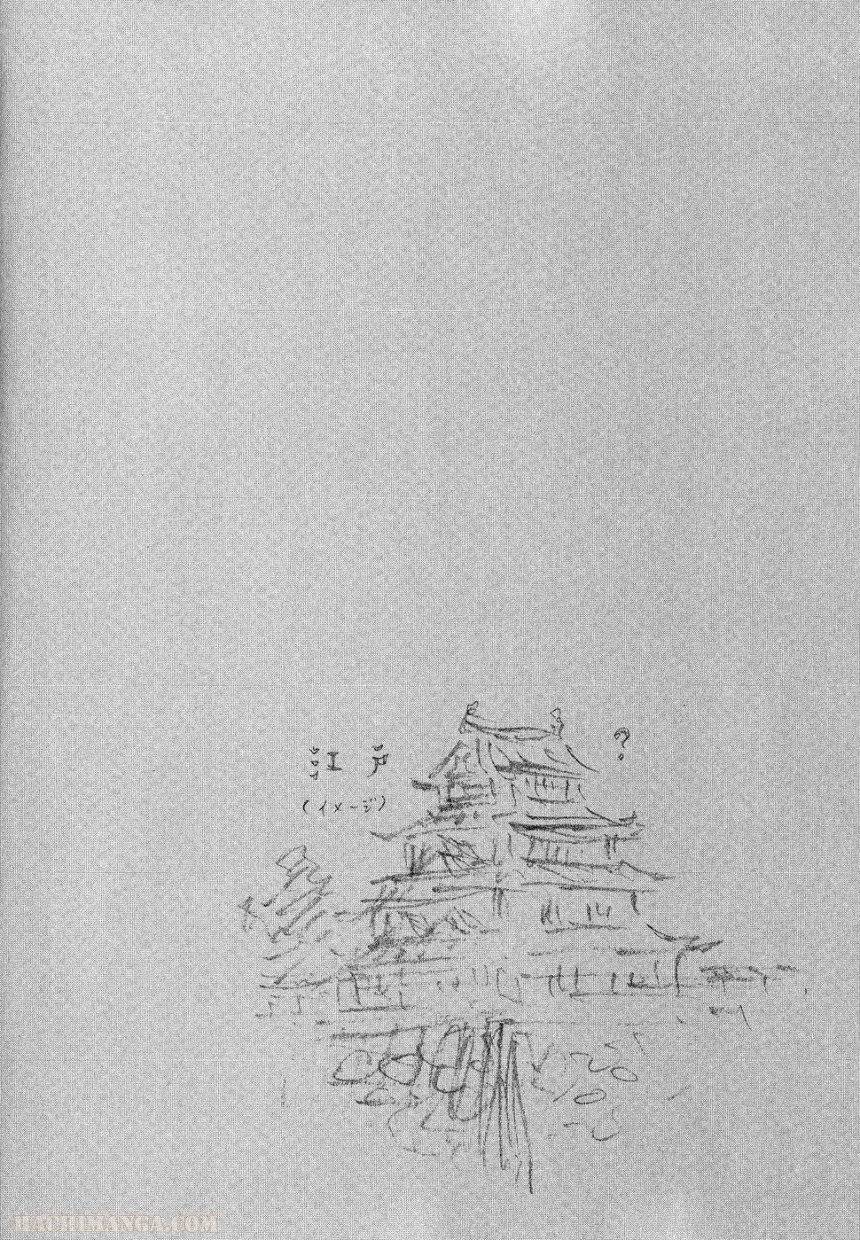 江戸
?
(イメージ)
HACHIMANGA.COM